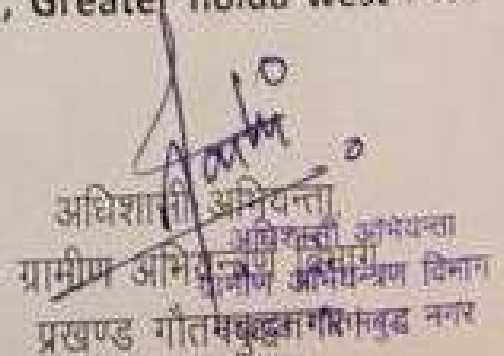 , Greater noida west
अधिशासी अभियन्ता
अधिशासी अभियन्ता
ग्रामीण अभियन्त्रण विभाग
ग्रामीण अभियन्त्रण विभाग
प्रखण्ड गौतमबुद्ध नगर